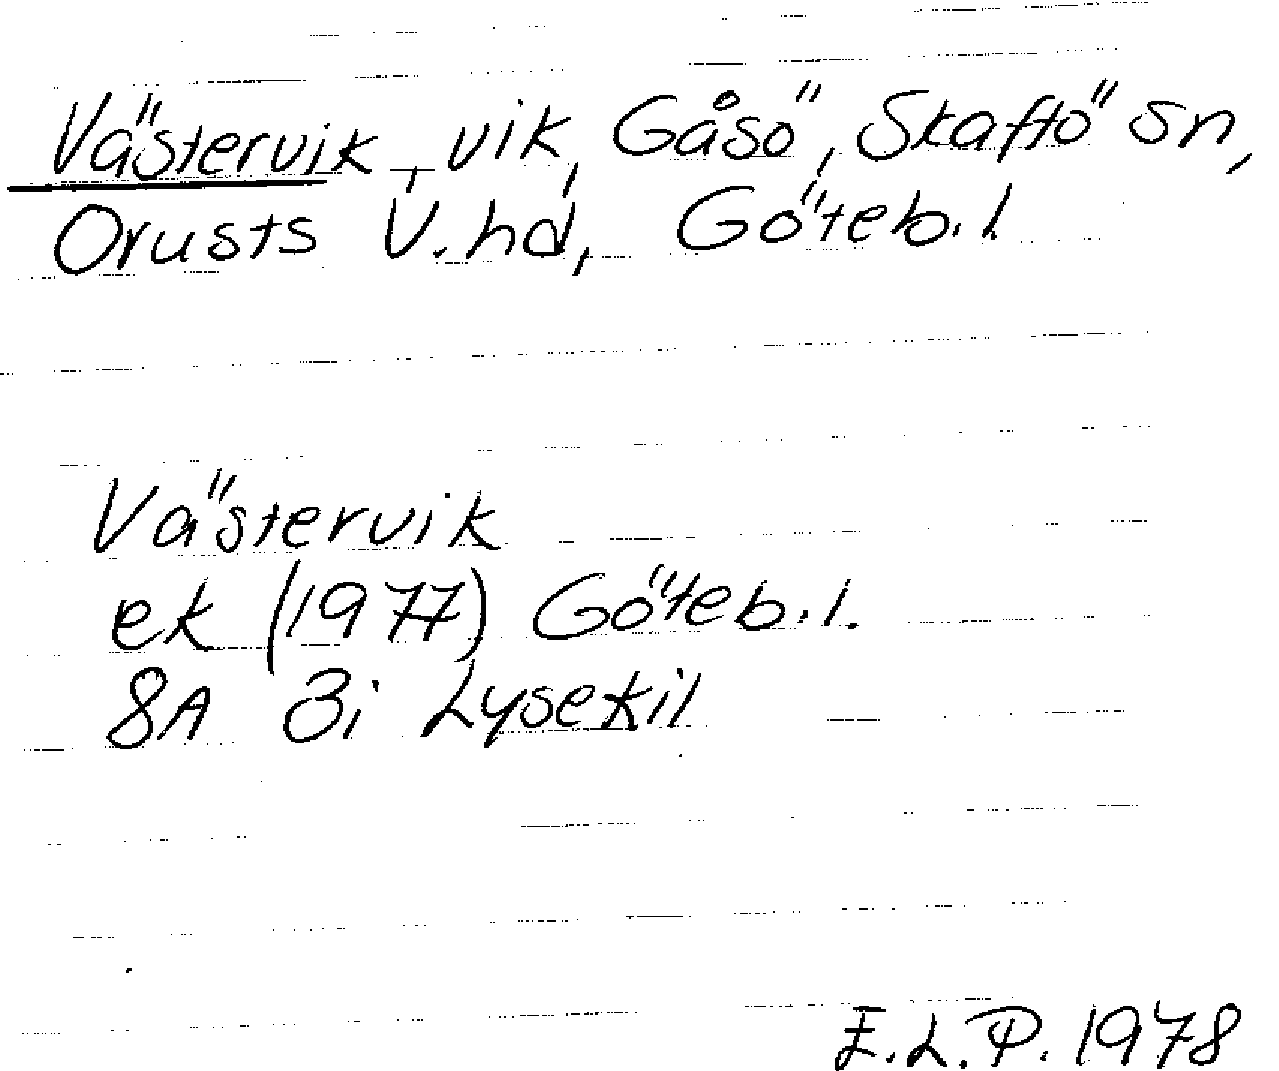 Västervik, vik, Gåsö, Skaftö sn,
Orusts V. hd, Göteb. l.
Västervik
ek (1977) Göteb. l.
8A 3i Lysekil
E.L.P. 1978